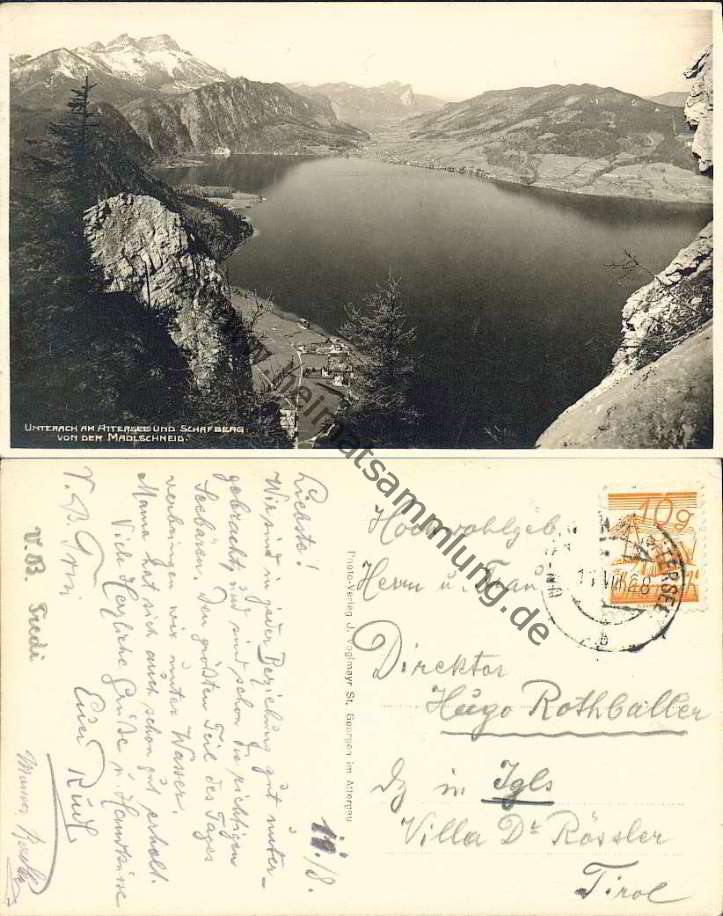 UNTERACH AM ATTERSEE UND SCHAFBERG
VON DER MADLSCHNEID.
www.heimatsammlung.de
Liebste!
Wir sind in jeder Beziehung gut unter-
gebracht, und sind schon die richtigen
Seebären. Den größten Teil des Tages
verbringen wir unter Wasser.
Mama hat sich auch schon gut erholt.
Viele Herzliche Grüße u. Handküsse
Euer Rudl
V. B.
V. B. Fredi
Mama
11./8.
Photo-Verlag J. Voglmayr St. Georgen im Attergau
10g
ATTERSEE
Hochwohlgeb.
Herrn u. Frau
Direktor
Hugo Rothballer
in Igls
Villa Dr Rössler
Tirol